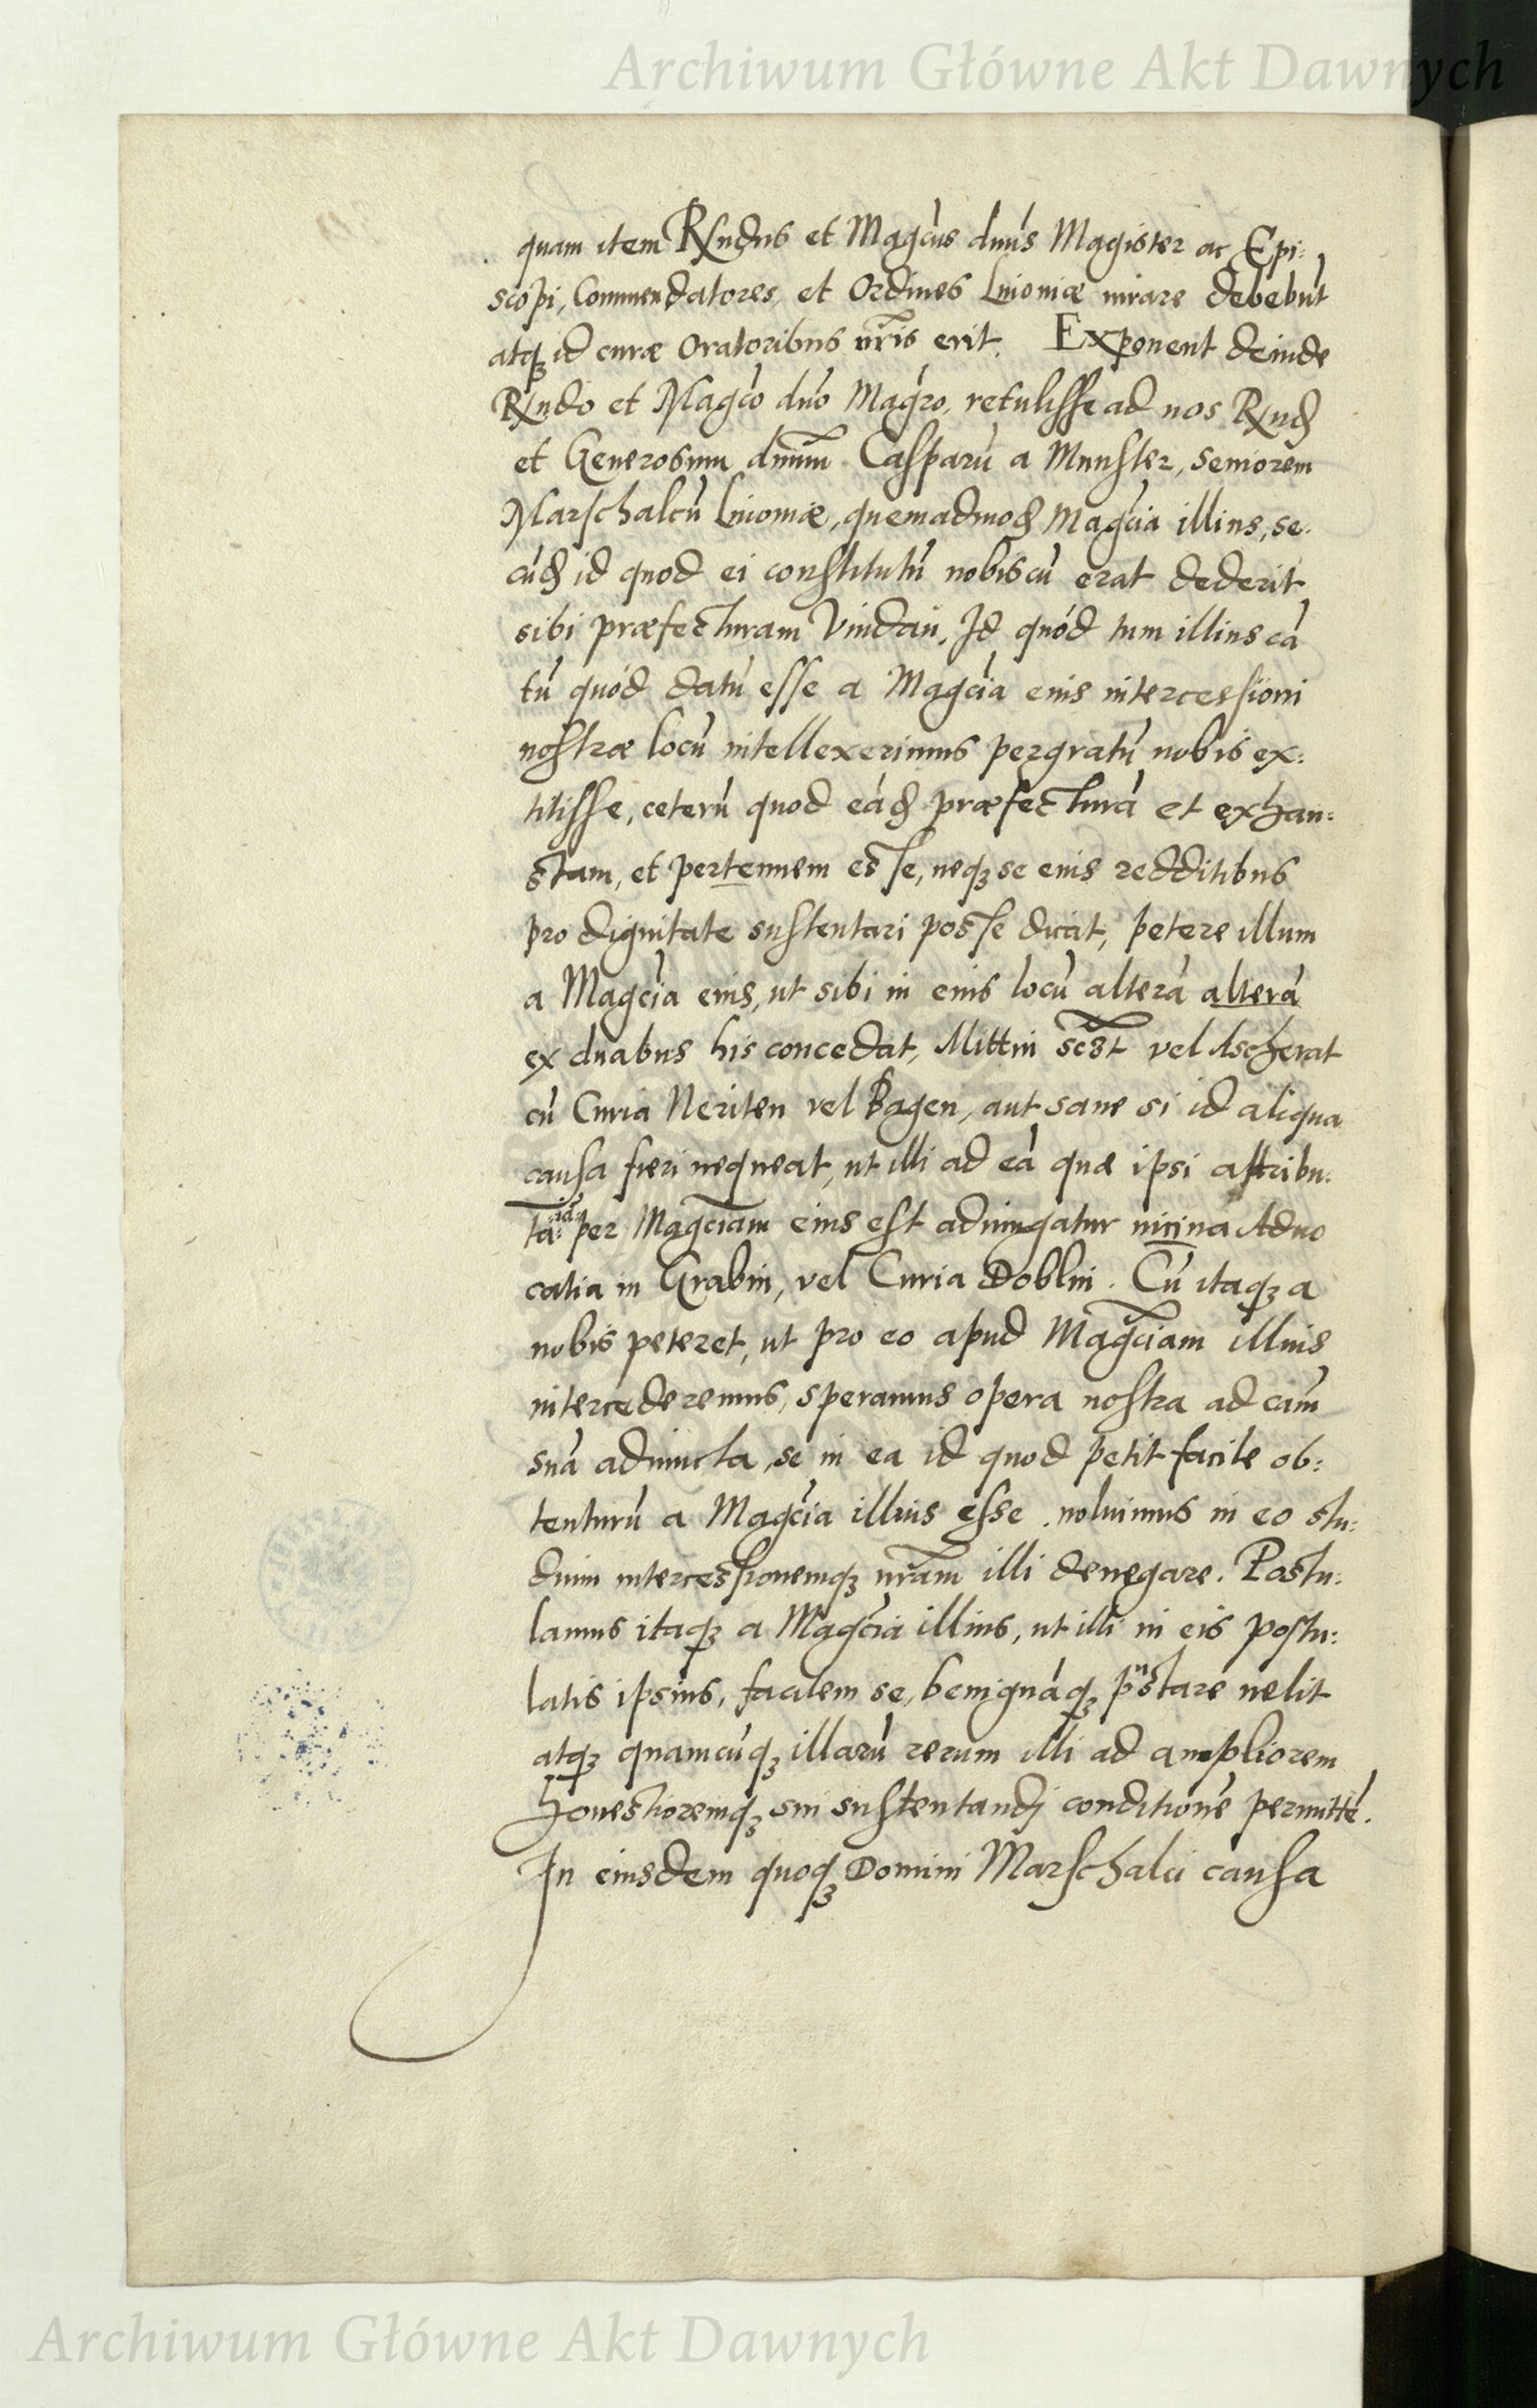 Archiwum Główne Akt Dawnych
quam item Rndus et Magcus dnus Magister ac Epi:
scopi, Commendatores, et Ordines Liuoniæ iurare debebūt
atqꝫ id curæ Oratoribus nris erit. Exponent deinde
Rndo et Magco dno Magro, retulisse ad nos Rnd
et Generosum dnum Casparū a Munster, seniorem
Marschalcū Liuoniæ, quemadmod Magcia illius, se.
cūd id quod ei constitutū nobiscū erat dederit
sibi præfecturam Vindaū. Id quód tum illius cā
tū quód datū esse a Magcia eius intercessioni
nostræ locū intellexerimus pergratū nobis ex:
titisse, ceterū quod eād præfecturā et exhau:
stam, et pertenuem esse, neqꝫ se eius redditibus
pro dignitate sustentari posse dicat, petere illum
a Magcia eius, ut sibi in eius locū alterā alterā
ex duabus his concedat, Mittin scꝫt vel Ascherat
cū Curia Neriten vel Bagen, aut sane si id aliqua
causa fieri nequeat, ut illi ad eā quæ ipsi attribu:
ta: iā per Magciam eius est adiungatur uicina Aduo
catia in Grabin, vel Curia Doblin. Cū itaqꝫ a
nobis peteret, ut pro eo apud Magciam illius
intercederemus, speramus opera nostra ad cām
suā adiuncta, se in ea id quod petit facile ob:
tenturū a Magcia illius esse. noluimus in eo stu:
dium intercessionemqꝫ nram illi denegare. Postu:
lamus itaqꝫ a Magcia illius, ut illi in eis postu:
latis ipsius, facilem se, benignāqꝫ pꝛstare uelit
atqꝫ quamcūqꝫ illarū rerum illi ad ampliorem
honestioremqꝫ sui sustentandi conditionē permittē.
In eiusdem quoqꝫ Domini Marschalci causa
Archiwum Główne Akt Dawnych